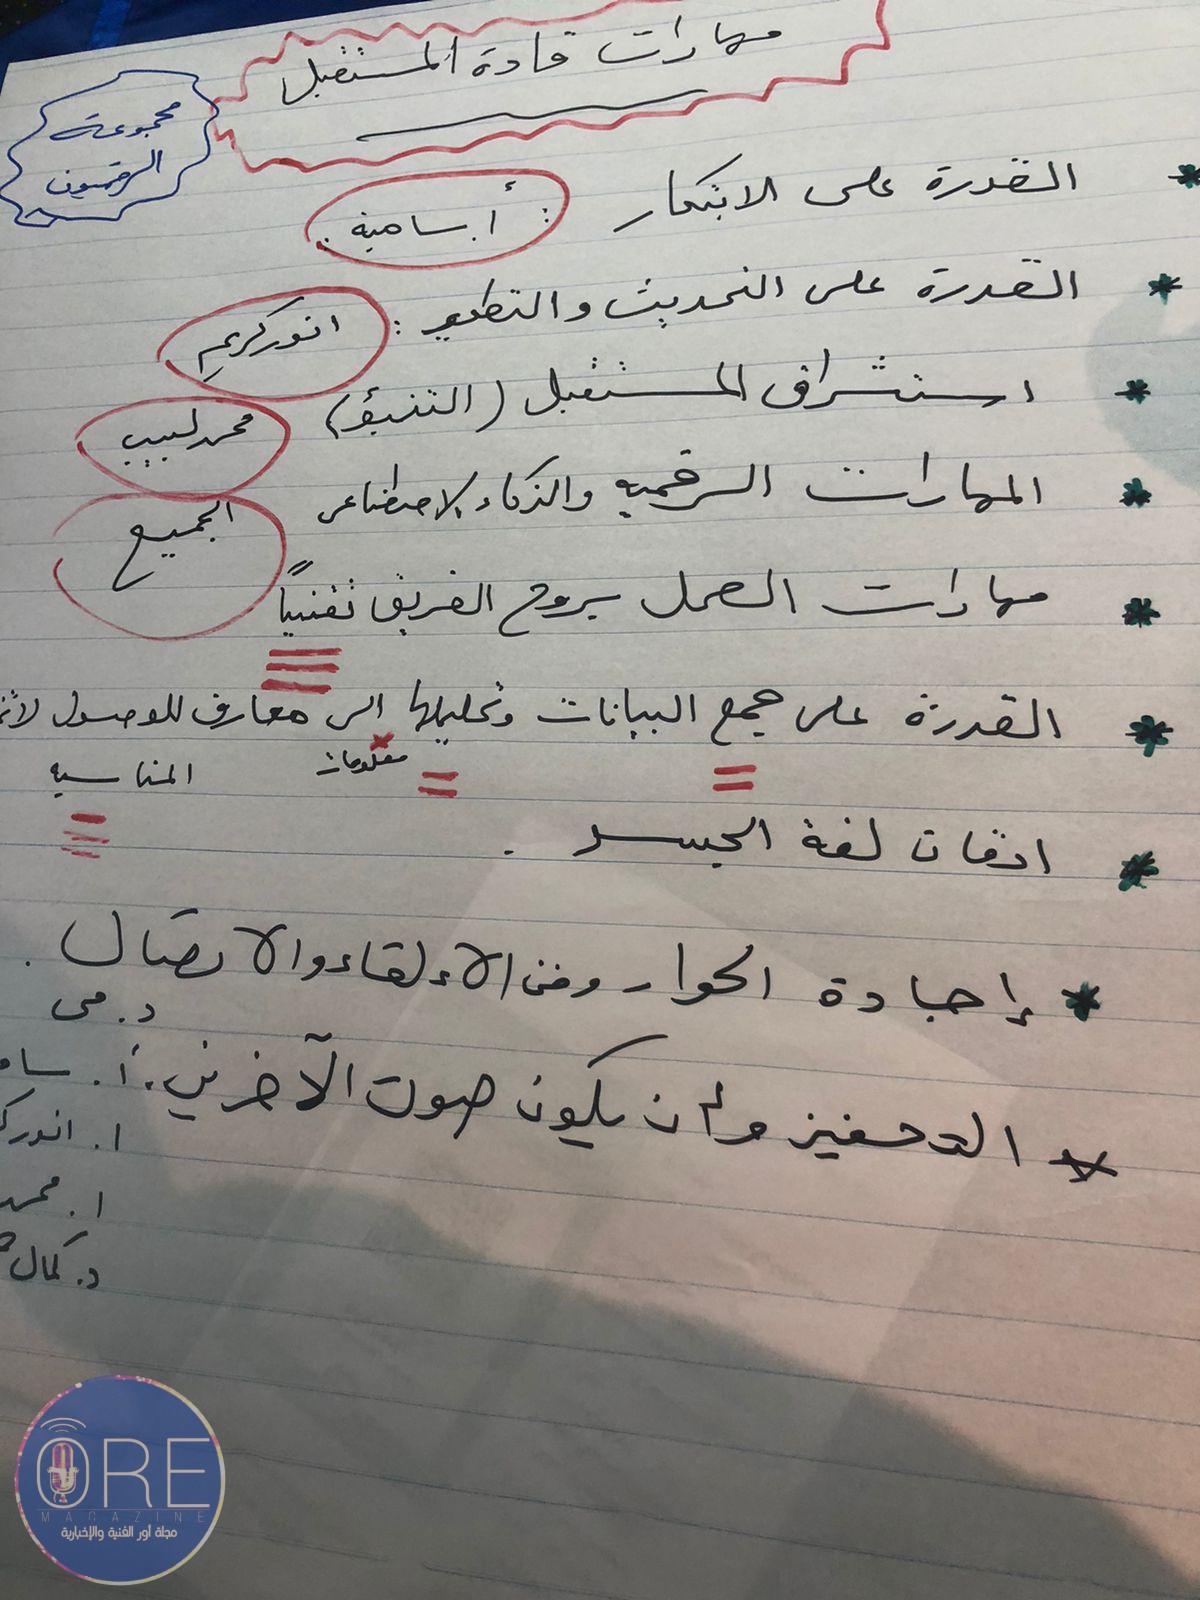 مهارات قادة المستقبل
مجموعة
الرقميون
* القدرة على الابتكار : أ. سامية
* القدرة على التحديث والتطوير : انور كريم
* استشراف المستقبل (التنبؤ) محمد لبيب
* المهارات الرقمية والذكاء الاصطناعى الجميع
* مهارات العمل بروح الفريق تقنياً
* القدرة على جمع البيانات وتحليلها الى معارف للوصول
معلومات المناسبه
* اتقان لغة الجسد .
* إجادة الحوار وفن الإلقاء والاتصال .
د. مى
* التحفيز وأن يكون صوت الآخرين .
أ.
ا. انور
ا. محمد
د. كمال
ORE
MAGAZINE
مجلة أور الفنية والإخبارية